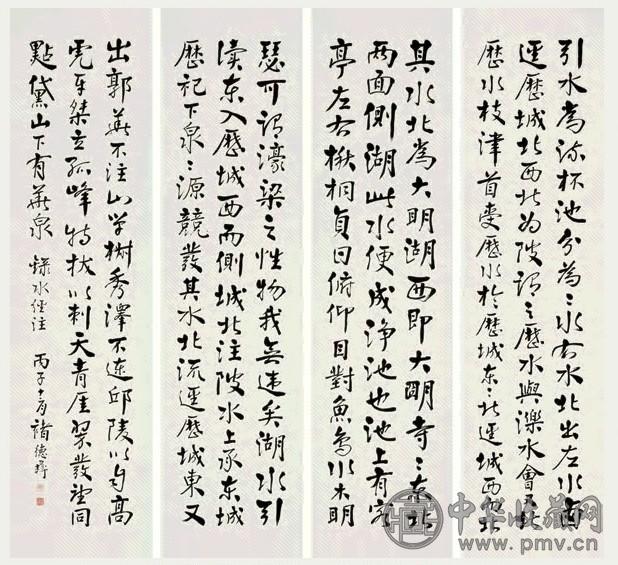 引水為流杯池分為〻水右水北出左水西
逕歷城北西北為陂謂之歷水與濼水會又北
歷水枝津首受歷水於歷城東〻北逕城西西北
其水北為大明湖西即大明寺〻東北
两面側湖此水便成浄池也池上有客
亭左右楸桐負日俯仰目對魚鳥水木明
瑟可謂濠梁之性物我無違矣湖水引
瀆東入歷城西而側城北注陂水上承東城
歷祀下泉〻源競發其水北流逕歷城東又
出郭華不注山單椒秀澤不連邱陵以自高
虎牙桀立孤峰特拔以刺天青崖翠發望同
點黛山下有華泉 錄水經注 丙子 褚德彝
中华收藏网
www.pmv.cn